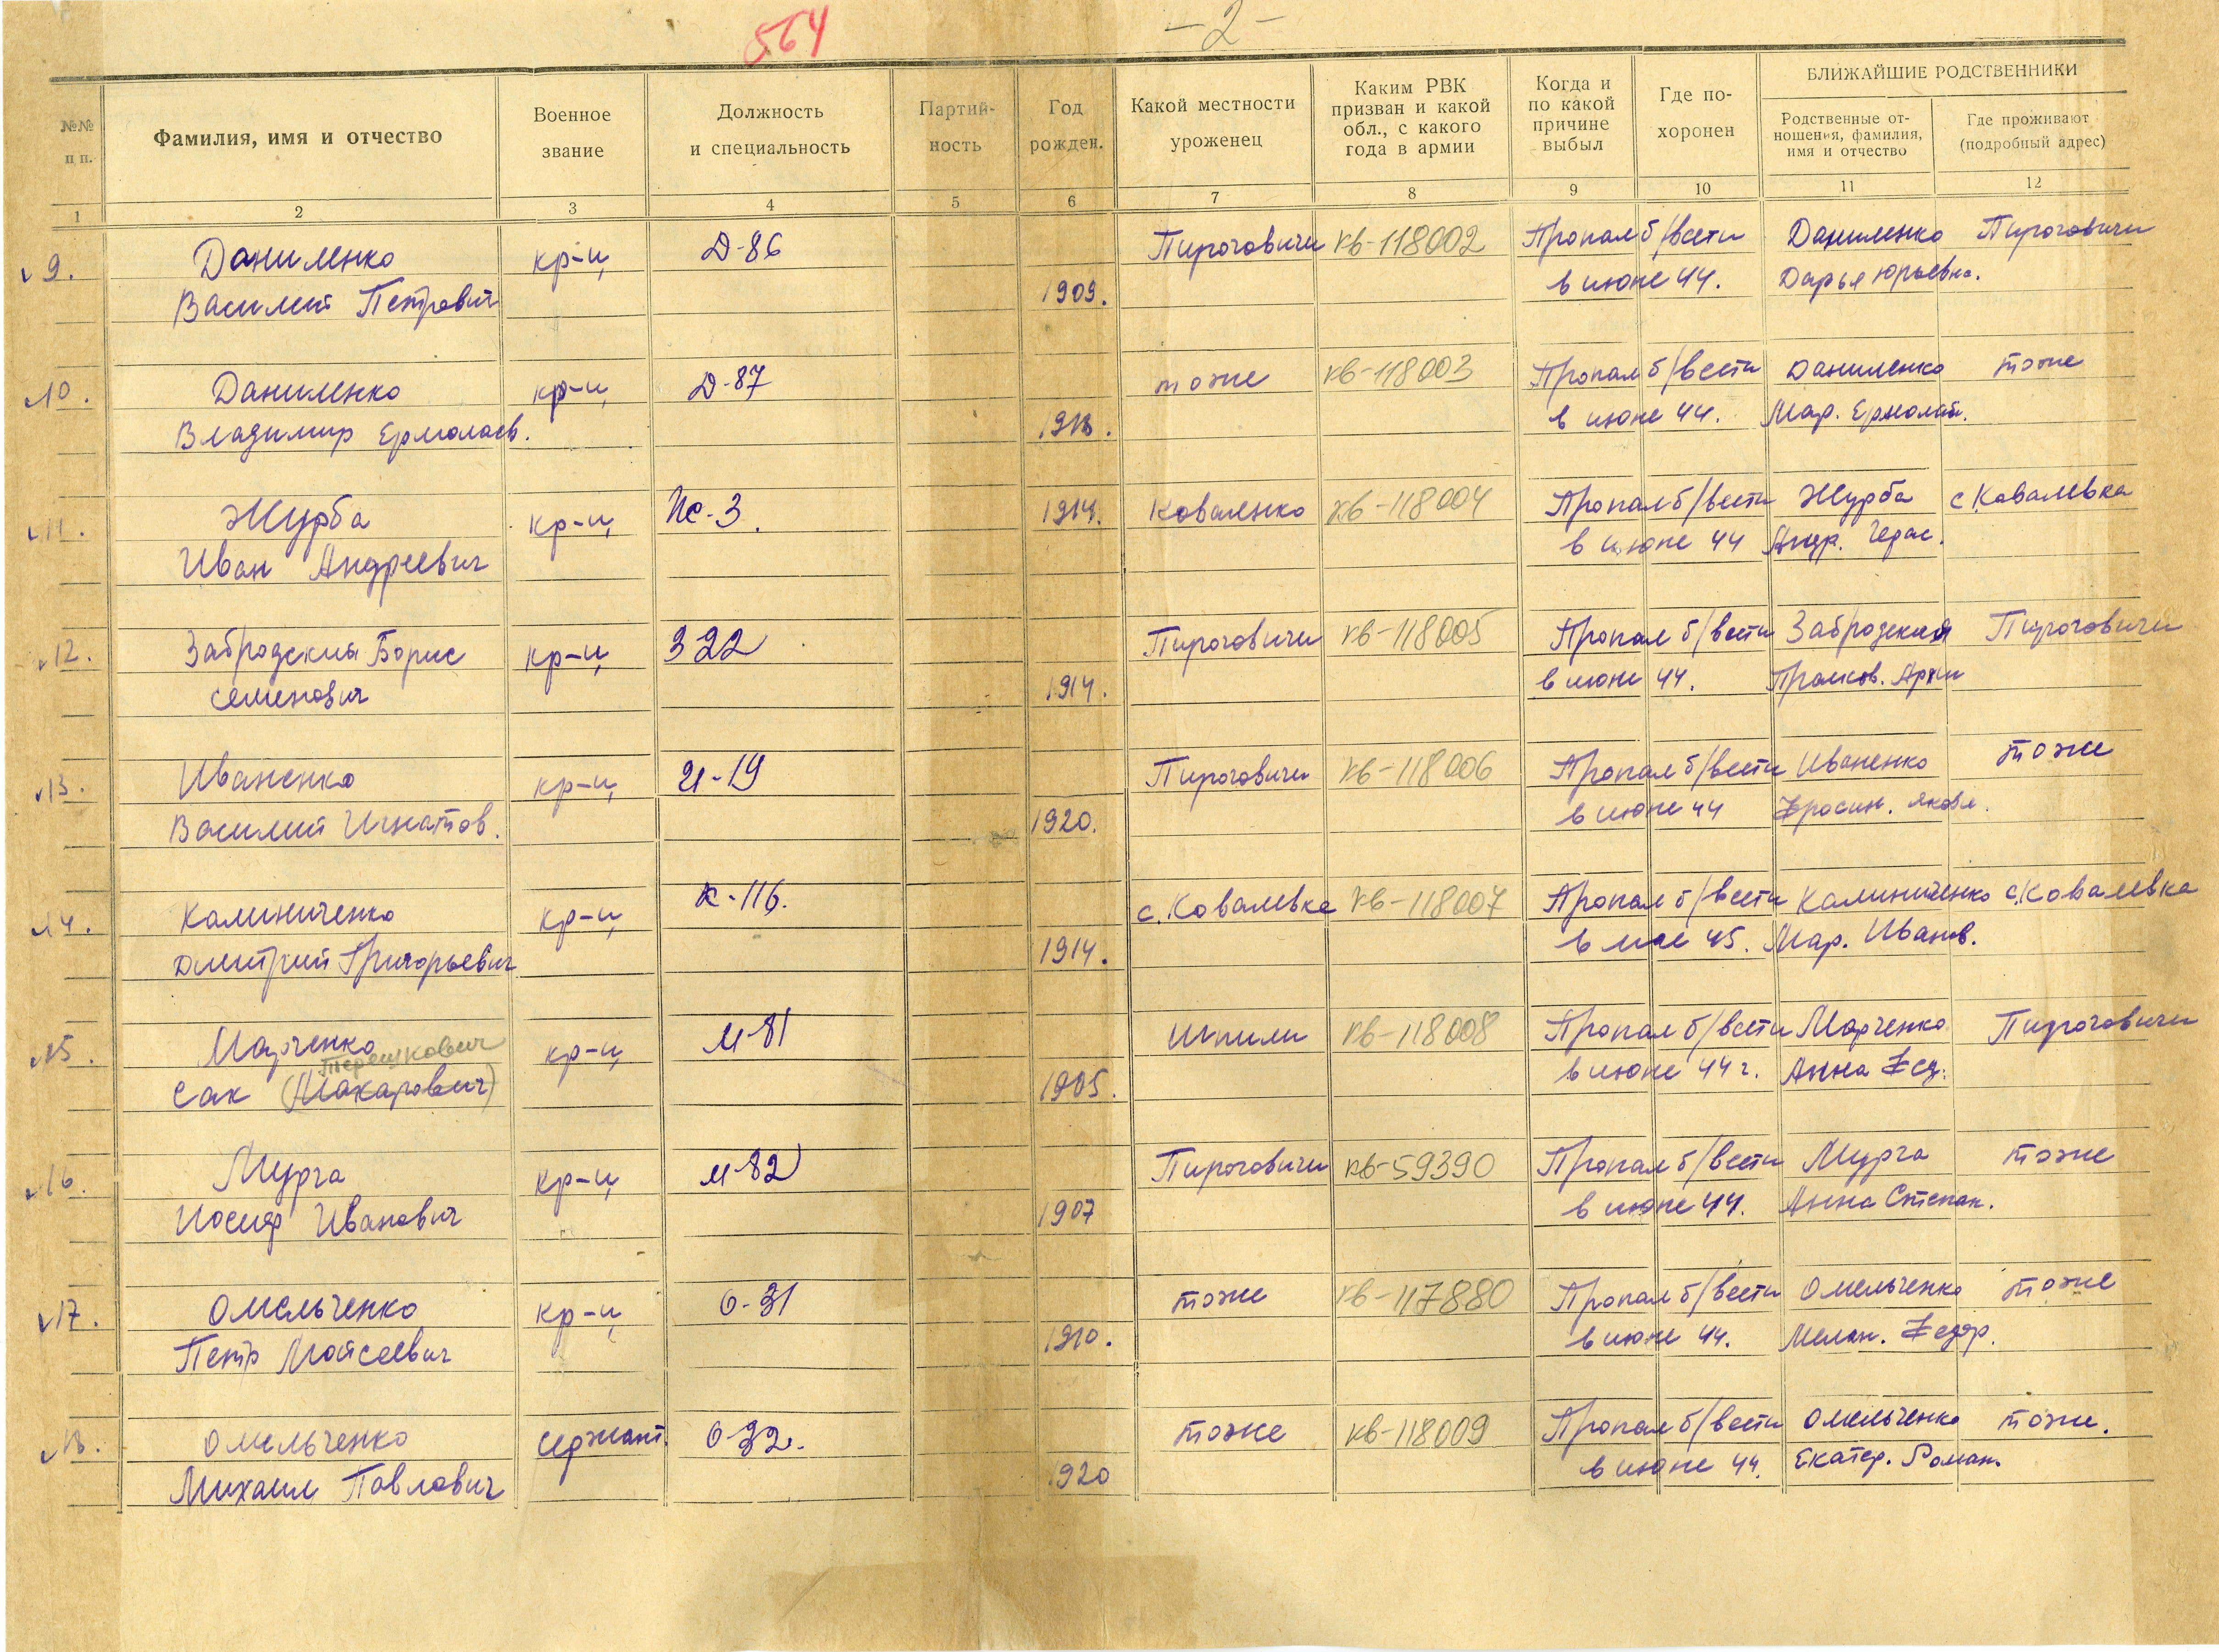 564
-2-
№№ п п.
Фамилия, имя и отчество
Военное звание
Должность и специальность
Партийность
Год рожден.
Какой местности уроженец
Каким РВК призван и какой обл., с какого года в армии
Когда и по какой причине выбыл
Где похоронен
БЛИЖАЙШИЕ РОДСТВЕННИКИ
Родственные отношения, фамилия, имя и отчество
Где проживают (подробный адрес)
1 2 3 4 5 6 7 8 9 10 11 12
9. Даниленко кр-ц Д-86 Пироговичи кв-118002 Пропал б/вести Даниленко Пироговичи
Василий Петрович 1909. в июне 44. Дарья Юрьевна.
10. Даниленко кр-ц Д-87 тоже кв-118003 Пропал б/вести Даниленко тоже
Владимир Ермолаев. в июне 44. Мар. Ермолай.
11. Журба кр-ц 1914. Коваленко кв-118004 Пропал б/вести Журба с Кавалевка
Иван Андреевич в июне 44 Андр. Герас.
12. Забродский Борис кр-ц 322 Пироговичи кв-118005 Пропал б/вести Забродская Пироговичи
Семенович 1914. в июне 44. Прасков.
13. Иваненко кр-ц И-19 Пироговичи кв-118006 Пропал б/вести Иваненко тоже
Василий Игнатов. 1920. в июне 44 Фросин. Яковл.
14. Калиниченко кр-ц К-116. с. Ковалевка кв-118007 Пропал б/вести Калиниченко с. Ковалевка
Дмитрий Григорьевич 1914. в мае 45. Мар. Иванов.
15. Марченко кр-ц М-81 Шпили кв-118008 Пропал б/вести Марченко Пироговичи
Терешкович
Сак (Макарович) 1905. в июне 44 г. Анна Фед.
16. Мурга кр-ц М-82 Пироговичи кв-59390 Пропал б/вести Мурга тоже
Иосиф Иванович 1907 в июне 44. Анна Степан.
17. Омельченко кр-ц О-31 тоже кв-117880 Пропал б/вести Омельченко тоже
Петр Мойсеевич 1910. в июне 44. Мелан. Федор.
18. Омельченко сержант. О-32. тоже кв-118009 Пропал б/вести Омельченко тоже.
Михаил Павлович 1920 в июне 44. Екатер. Роман.